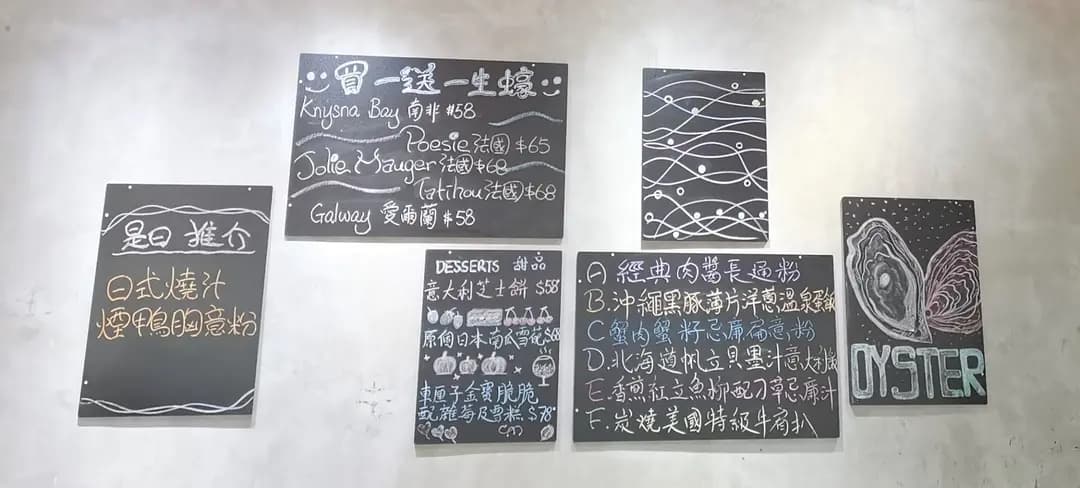 是日 推介
日式燒汁
煙鴨胸意粉
買一送一生蠔
Knysna Bay 南非 $58
Poesie 法國 $65
Jolie Mauger 法國 $68
Tatihou 法國 $68
Galway 愛爾蘭 $58
DESSERTS 甜品
意大利芝士餅 $58
原個日本南瓜雪花 $68
車厘子金寶脆脆
配雜莓及雪糕 $78
A 經典肉醬長通粉
B. 沖繩黑豚薄片洋蔥溫泉蛋飯
C 蟹肉蟹籽忌廉扁意粉
D. 北海道帆立貝墨汁意大利飯
E. 香煎紅立魚柳配刁草忌廉汁
F. 炭燒美國特級牛肩扒
OYSTER